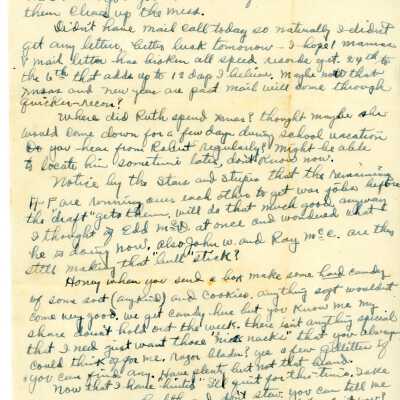 them clear up the mess.
Didn't have mail call today so naturally I didn't
get any letter, better luck tomorrow - I hope! Mamas
mail letter has broken all speed records, get 24th to
the 6th that adds up to 12 days I believe. Maybe now that
Xmas and new years are past mail will come through
quicker
Where did Ruth spend Xmas? thought maybe she
would come down for a few days during school vacation
Do you hear from Robert regularly? Might be able
to locate him sometime later, don't know now.
Notice by the Stars and Stripes that the remaining
4-F are running over each other to get war jobs before
the "draft" gets them, will do that much good anyway
I thought of Edd McD at once and wondered what
he is doing now, also John W. and Ray McC. are they
still making that bull "stick"?
Honey when you send a box make some hard candy
of some sort (any kind) and cookies. anything soft wouldn't
come very good, we get candy here but you know me my
share don't hold out the week. there isn't anything special
that I need just want those "nick nacks" that you always
could think of for me. razor blades? yes a few Gillettes if
you can find any. Have plenty but not that brand.
Now that I have "hinted" I'll quit for this time. Take
stew you can tell me